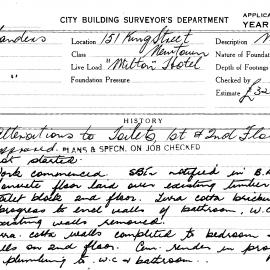 CITY BUILDING SURVEYOR'S DEPARTMENT
APPLICA
YEAR
anders Location 151 King Street Description
Class Newtown Nature of Foundation
" Live Load "Milton Hotel Depth of Footings
Foundation Pressure Checked by
Estimate £32
HISTORY
alterations to Toilets, 1st & 2nd Flo
PLANS & SPECN. ON JOB CHECKED
started
ork commenced. notified in B.
oncrete floor laid over existing timber
ilet block 2nd floor. Terra cotta brick
progress to end walls of bathroom, W.C
isting walls removed.
cotta walls completed to bedroom
lls on 2nd floor. Cem. render in pro
plumbing to W.C & bathroom..